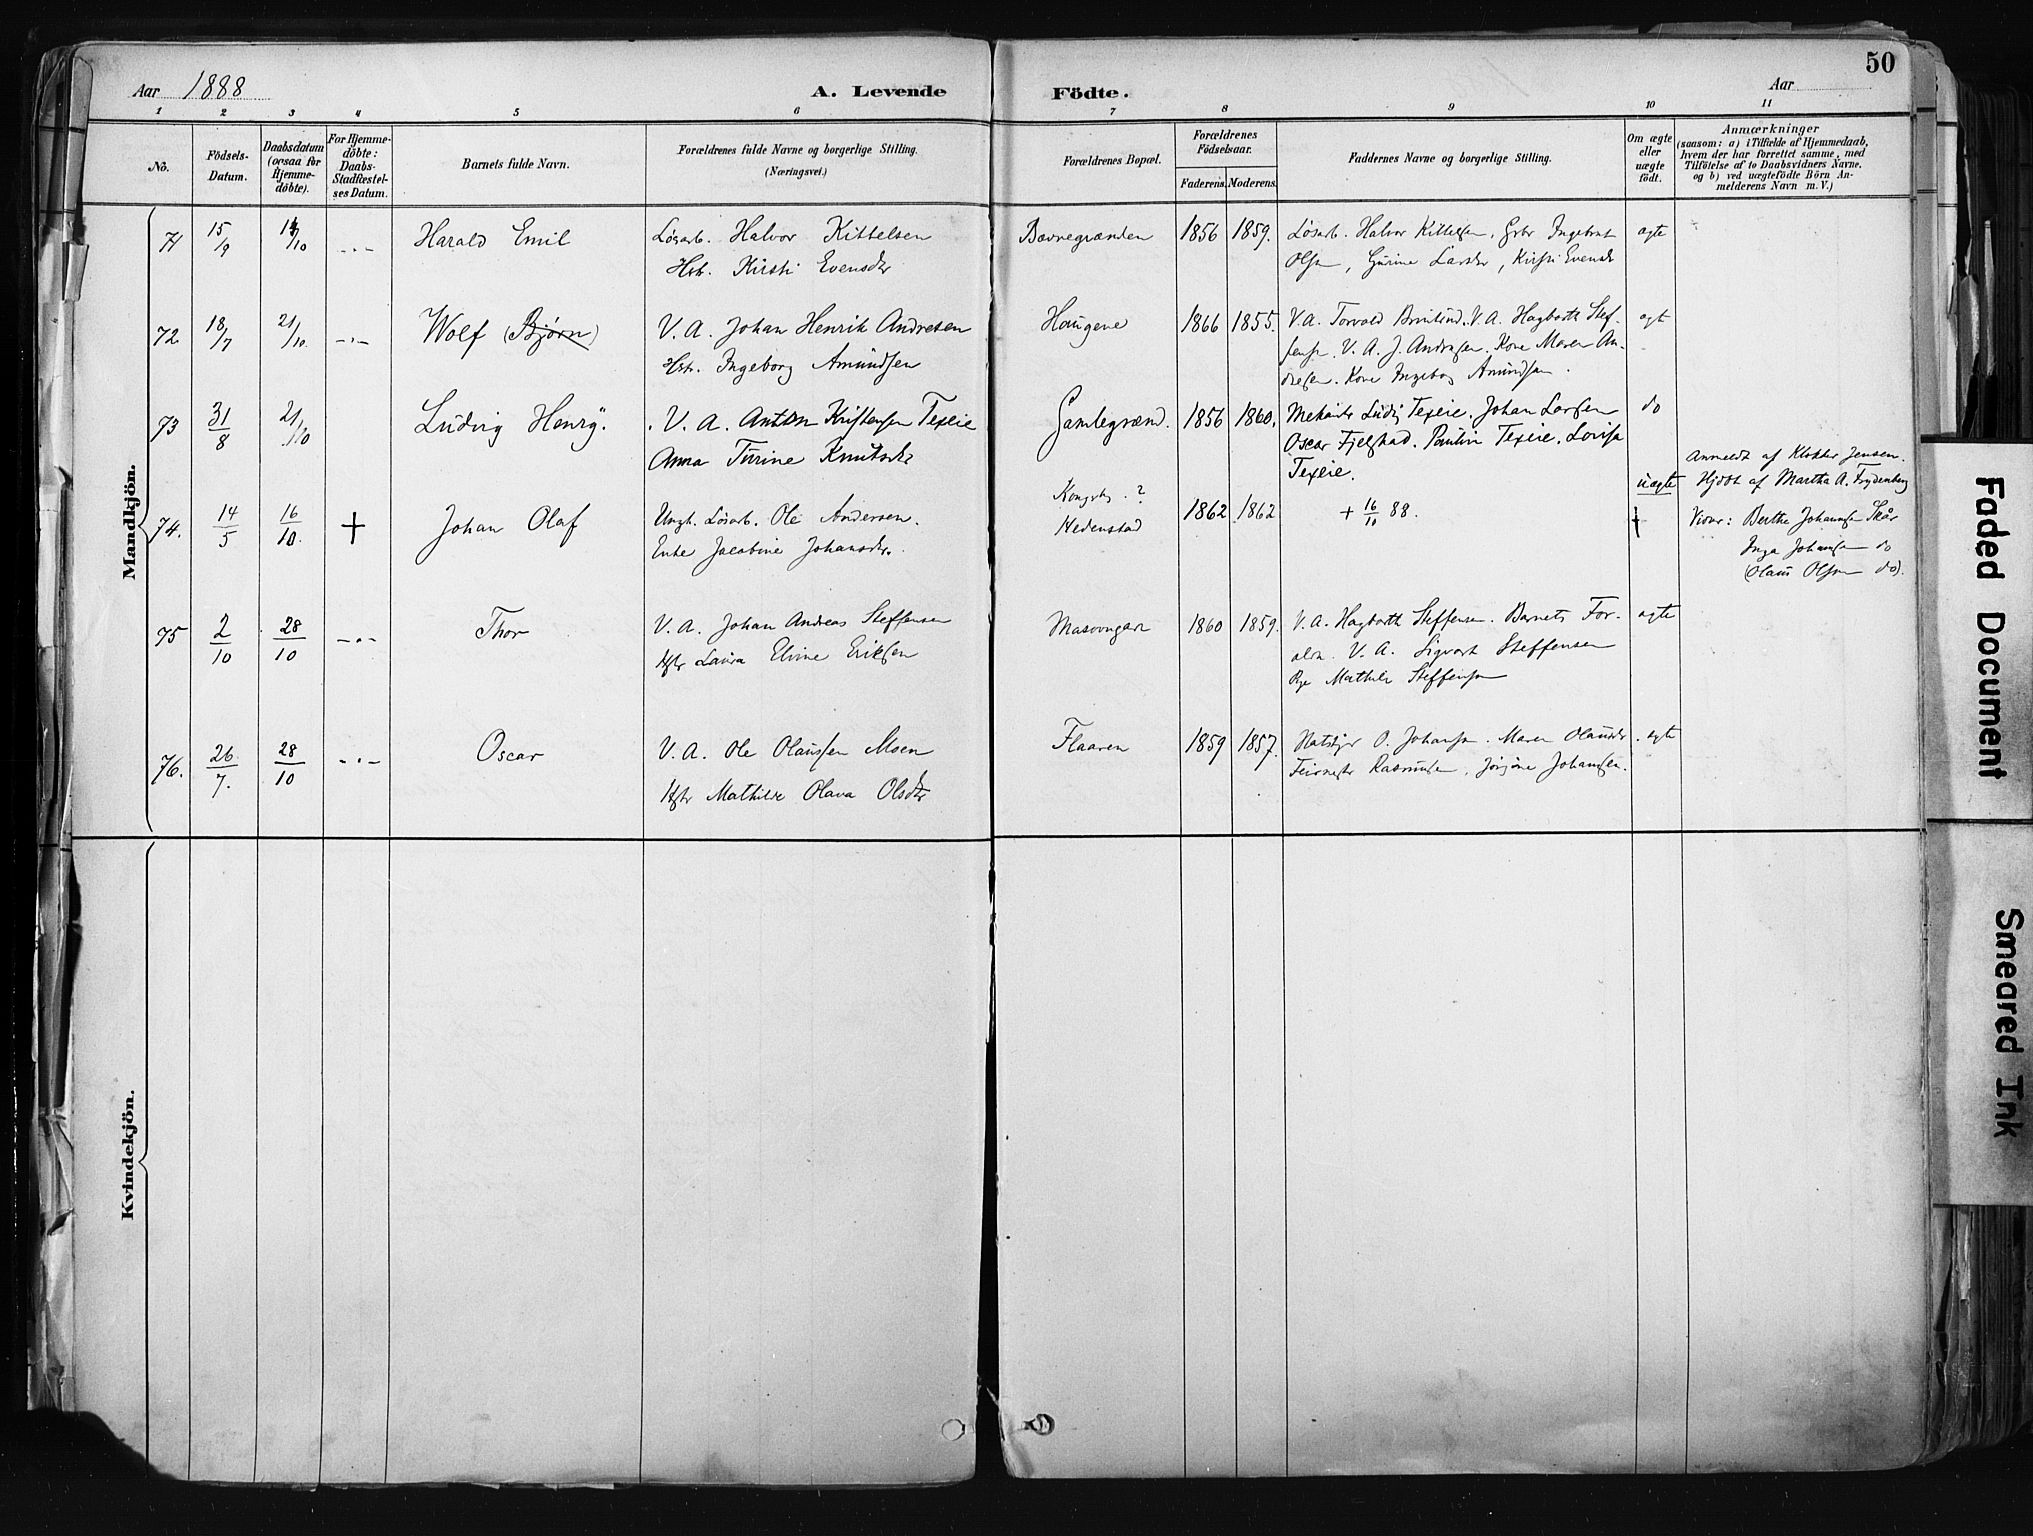 50
Aar 1888
A. Levende
Födte.
Aar
1 2 3 4 5 6 7 8 9 10 11
No.
Födsels-Datum.
Daabsdatum (ogsaa for Hjemme-döbte).
For Hjemme-döbte: Daabs-Stadfæstel-ses Datum.
Barnets fulde Navn.
Forældrenes fulde Navne og borgerlige Stilling.
(Næringsvei.)
Forældrenes Bopæl.
Forældrenes Födselsaar.
Faderens. Moderens.
Faddernes Navne og borgerlige Stilling.
Om ægte eller uægte födt.
Anmærkninger
(saasom: a) i Tilfælde af Hjemmedaab,
hvem der har forrettet samme, med
Tilföielse af to Daabsvidners Navne.
og b) ved uægtefödte Börn An-
melderens Navn m. V.)
Mandkjön.
71 15/9 14/10 -"- Harald Emil Løsarb. Halvor Kittelsen 1856 1859. Løsarb. Halvor Kittelsen, Grbr Ingebret ægte
Hst. Kirsti Evensdtr
Olsen, Gurine Larsdtr, Kirsti Evensdtr
72 18/7 21/10. -"- Wolf (Bjørn) V. A. Johan Henrik Andresen Haugene 1866 1855. V. A. Torvald V. A. Hagbarth Stef- ægt
Hstr. Ingeborg Amundsen
fensen. V. A. J. Andresen. Kone Maren An-
dresen. Kone Ingeborg Amundsen.
73 31/8 21/10 Ludvig Henry. V. A. Anton Kristensen Texeie Gamlegrænd. 1856 1860. Ludvig Texeie. Johan Larsen do
Anna Turine Knutsdtr
Oscar Fjelstad. Pauline Texeie. Lovisa
Texeie.
74. 14/5 16/10 + Johan Olaf Ungk. Løsarb. Ole Andersen. Kongsbg. ? 1862 1862 + 16/10 88. uægte
Enke Jacobine Johansdtr.
Hedenstad
+
Anmeldt af Klokker Jensen.
Hjdbt af Martha A. Frydenberg
Vidner: Berthe Johannesen Skår
Inga Johansen do
(Olaus Olsen do).
75 2/10 28/10 -"- Thor V. A. Johan Andreas Steffensen 1860 1859. V. A. Hagbarth Steffensen. Barnets For- ægte
Hstr Laura Elvine Eriksen
ældr. V. A. Sigvart Steffensen
Pge Mathilde Steffensen
76. 26/7. 28/10 -"- Oscar V. A. Ole Olaussen Moen Flaaren 1859 1857. O. Johansen. Maren Olausdtr. ægte
Hstr Mathilde Olava Olsdtr
Rasmussen, Johansen.
Kvindekjön.
Faded Document
Smeared Ink